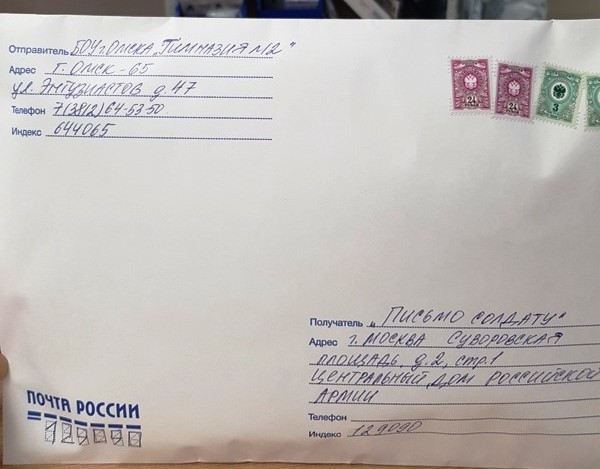 Отправитель БОУ г. ОМСКА „ГИМНАЗИЯ №12"
Адрес Г. ОМСК - 65
ул. ЭНТУЗИАСТОВ д. 47
Телефон 7(3812) 64-53-50
Индекс 644065
24 24 3
Получатель „ПИСЬМО СОЛДАТУ"
Адрес г. МОСКВА СУВОРОВСКАЯ
ПЛОЩАДЬ, д. 2, стр. 1
ЦЕНТРАЛЬНЫЙ ДОМ РОССИЙСКОЙ
АРМИИ
Телефон
Индекс 129090
ПОЧТА РОССИИ
129090